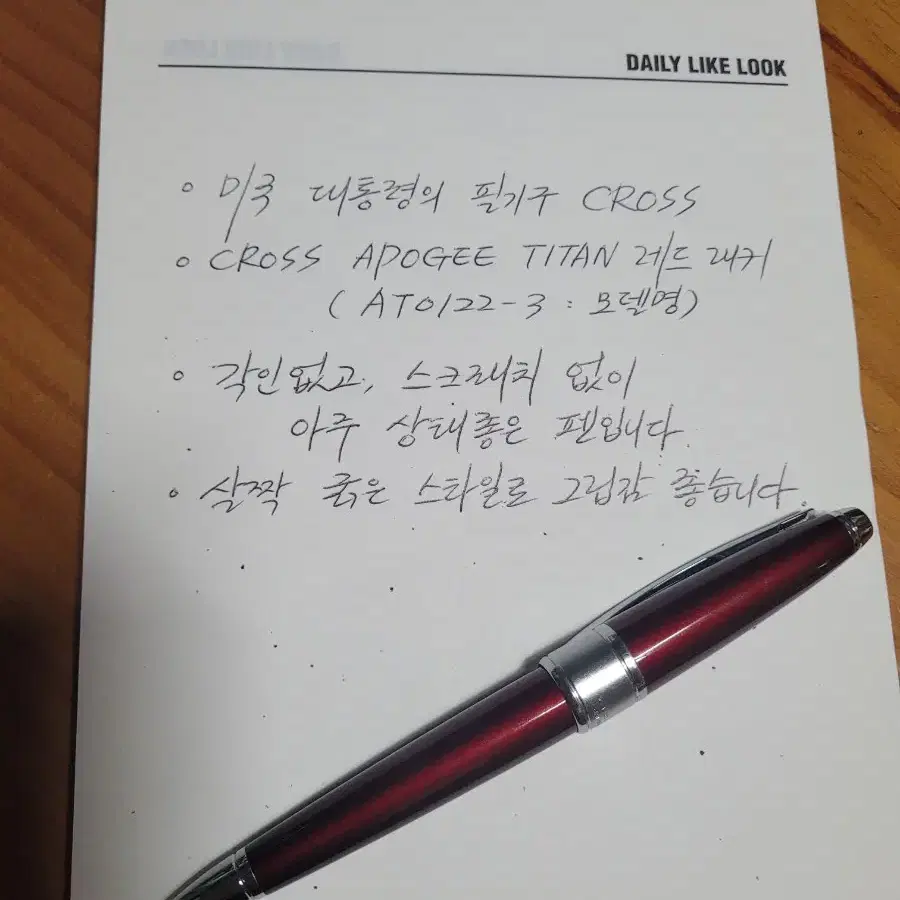 DAILY LIKE LOOK
◦ 미국 대통령의 필기구 CROSS
◦ CROSS APOGEE TITAN 레드 래커
( AT0122-3 : 모델명)
◦ 각인없고, 스크래치 없이
아주 상태좋은 펜입니다.
◦ 살짝 굵은 스타일로 그립감 좋습니다.